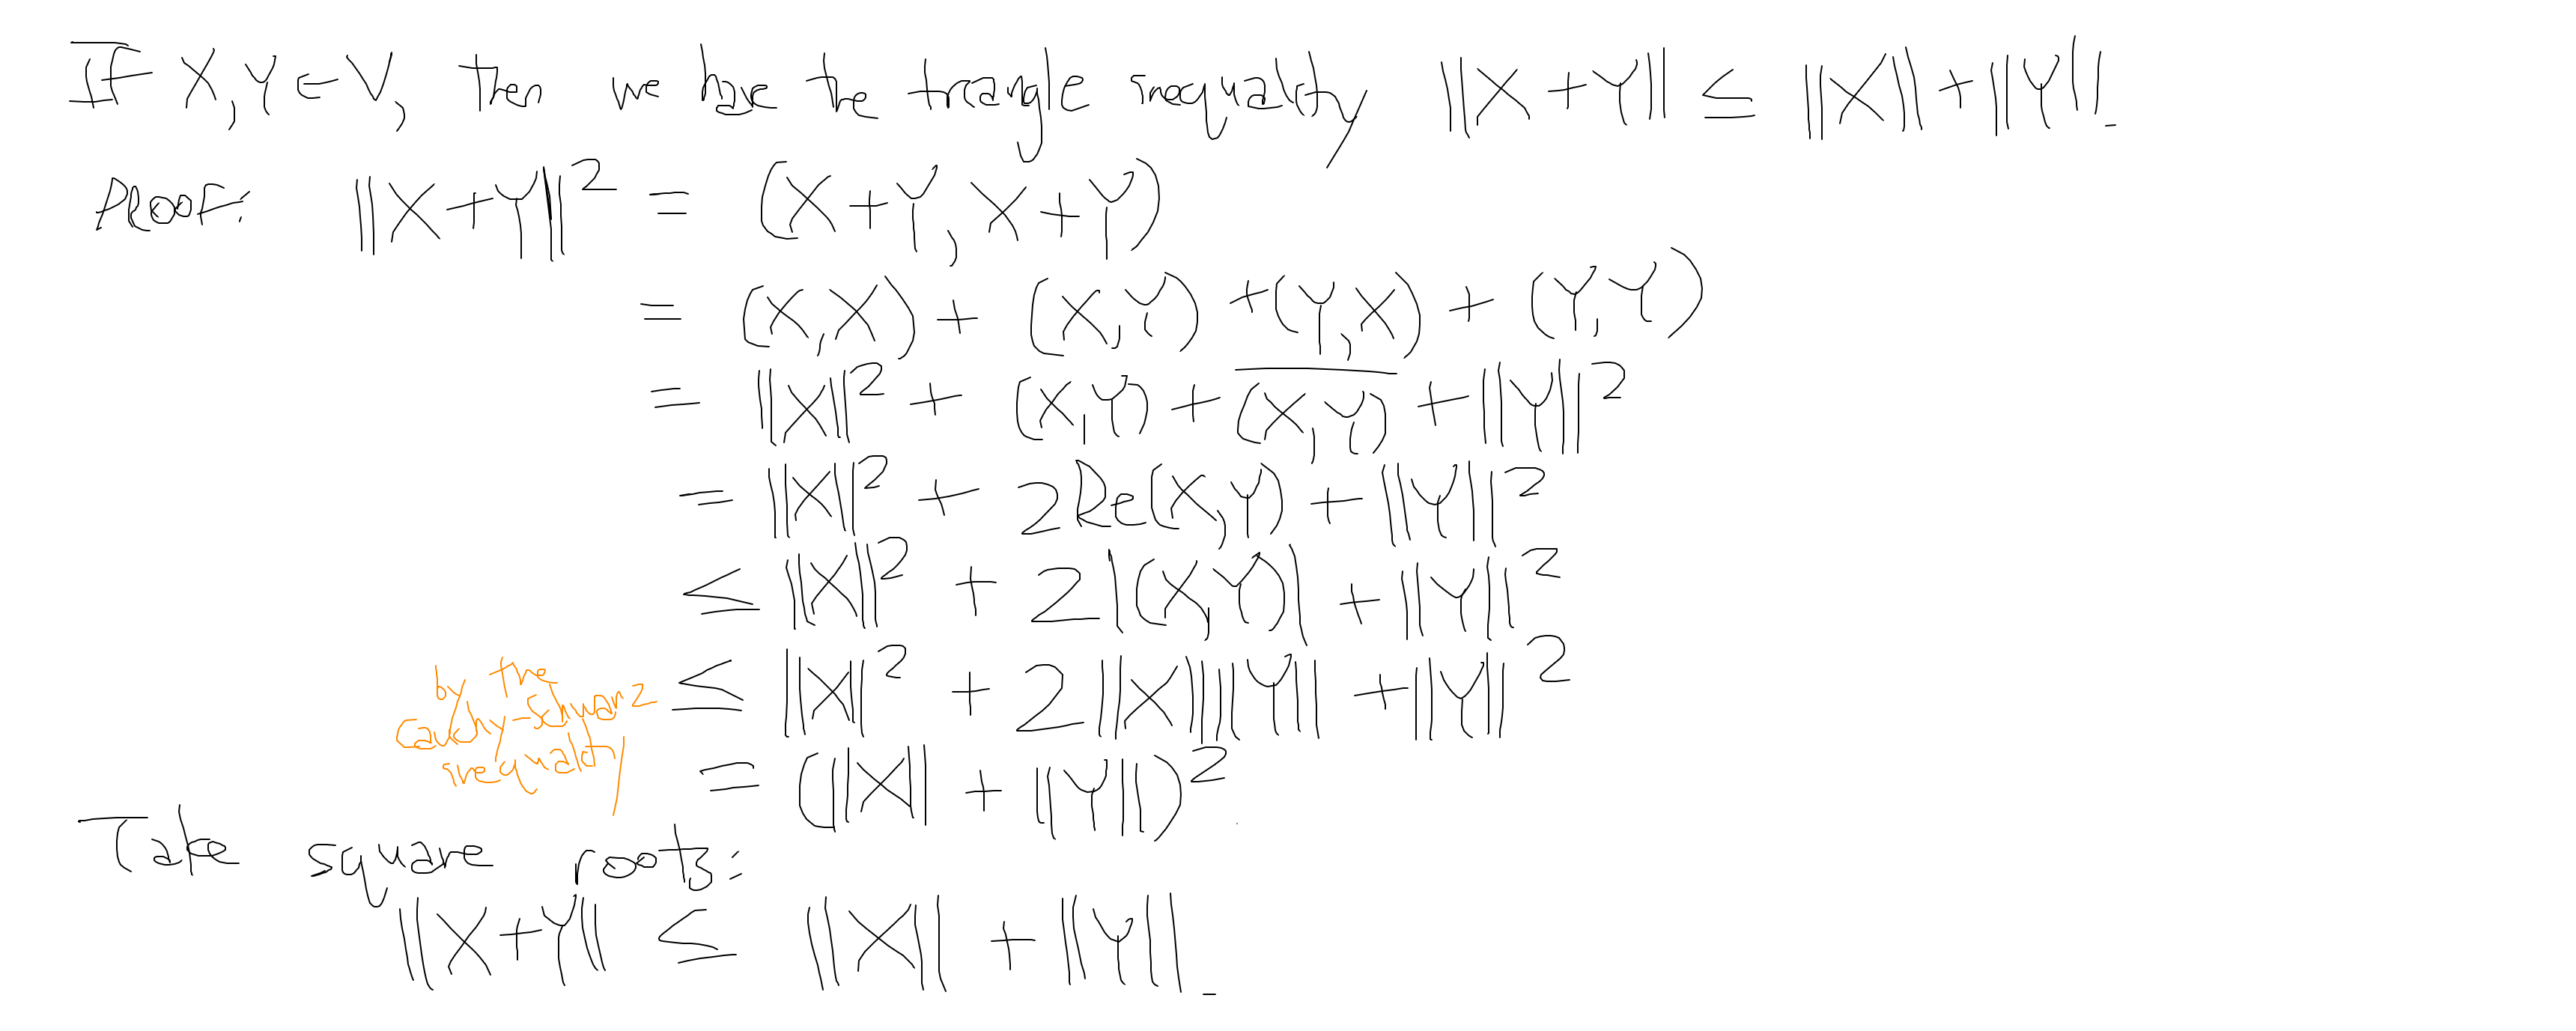 If X, Y ∈ V, then we have the triangle inequality ||X+Y|| ≤ ||X|| + ||Y||.
Proof: ||X+Y||² = (X+Y, X+Y)
= (X,X) + (X,Y) + (Y,X) + (Y,Y)
= ||X||² + (X,Y) + \overline{(X,Y)} + ||Y||²
= ||X||² + 2Re(X,Y) + ||Y||²
≤ ||X||² + 2|(X,Y)| + ||Y||²
≤ ||X||² + 2||X||||Y|| + ||Y||²
by the
Cauchy-Schwarz
inequality
= (||X|| + ||Y||)².
Take square roots:
||X+Y|| ≤ ||X|| + ||Y||.